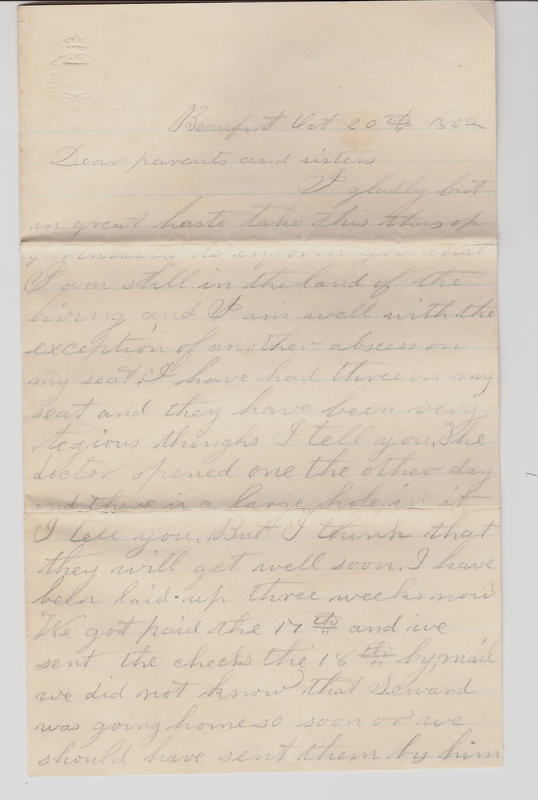 Beaufort Oct 20th 1862
Dear parents and sisters
I gladly but
in great haste take this this op
to in form you that
I am still in the land of the
living and I am well with the
exception of another abscess on
my seat. I have had three on my
seat and they have been very
tegious thinghs I tell you. The
doctor opened one the other day
and there is a large hole in it
I tell you. But I think that
they will get well soon. I have
been laid up three weeks now
We got paid the 17th and we
sent the checks the 18th by mail
we did not know that Seward
was going home so soon or we
should have sent them by him